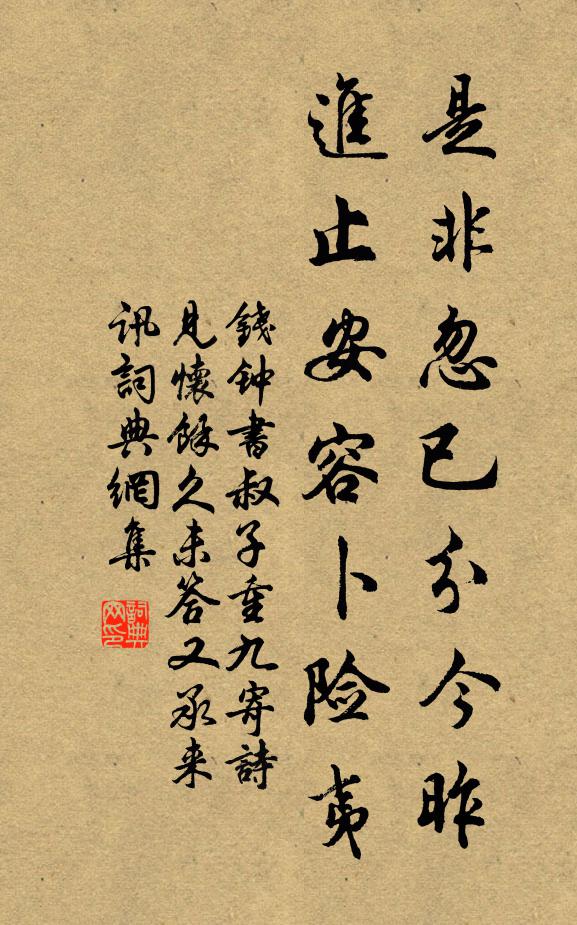 是非忽已分今昨
進止安容卜险夷
錢钟書叔子重九寄詩
見懷餘久未答又承来
訊詞典網集
詞典
网印